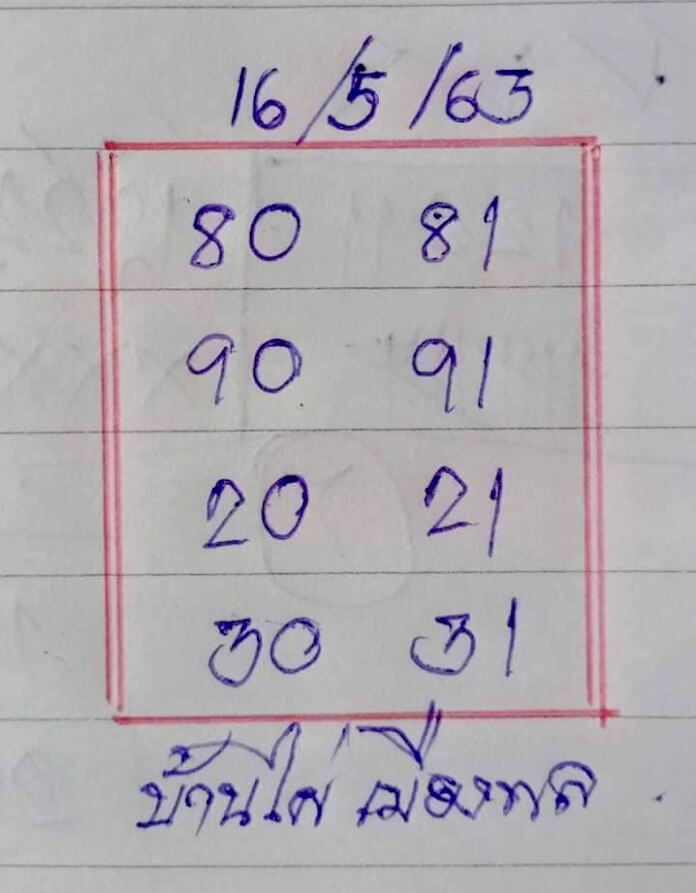 16/5/63
80 81
90 91
20 21
30 31
บ้านไผ่ เมืองพล